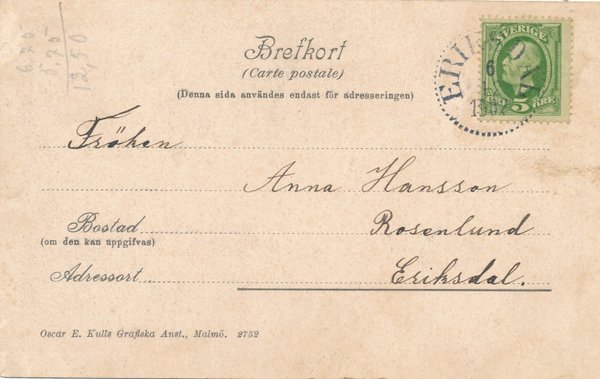 6,75
5,75
12,50
Brefkort
(Carte postale)
(Denna sida användes endast för adresseringen)
SVERIGE
5 ÖRE
6
Fröken
Anna Hansson
Bostad
Rosenlund
(om den kan uppgifvas)
Adressort
Eriksdal.
Oscar E. Kulls Grafiska Anst., Malmö. 2752